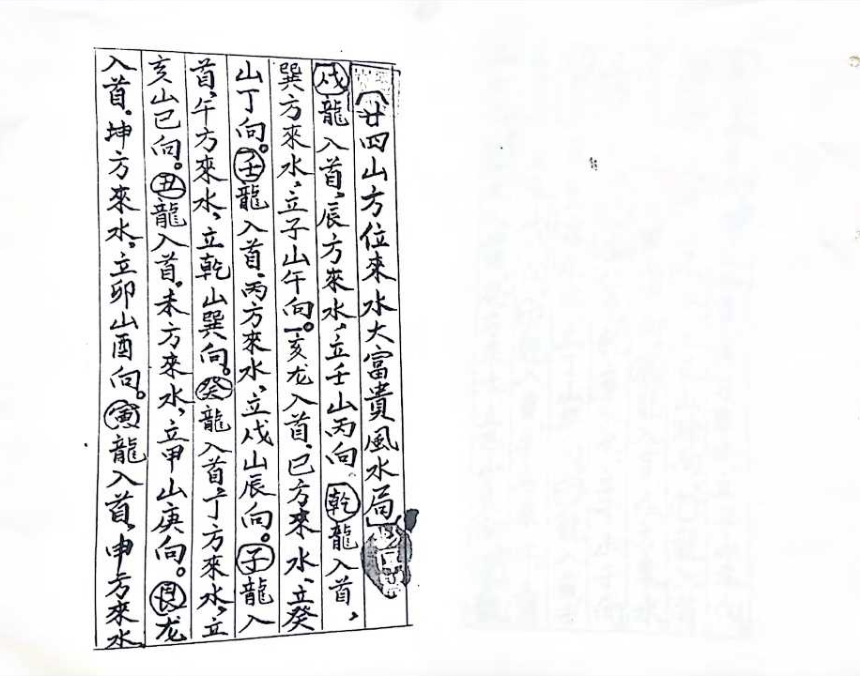 廿四山方位來水大富貴風水局
戌龍入首，辰方來水，立壬山丙向。乾龍入首，
巽方來水，立子山午向。亥龙入首，巳方來水，立癸
山丁向。壬龍入首，丙方來水，立戌山辰向。子龍入
首，午方來水，立乾山巽向。癸龍入首，丁方來水，立
亥山巳向。丑龍入首，未方來水，立甲山庚向。艮龙
入首，坤方來水，立卯山酉向。寅龍入首，申方來水